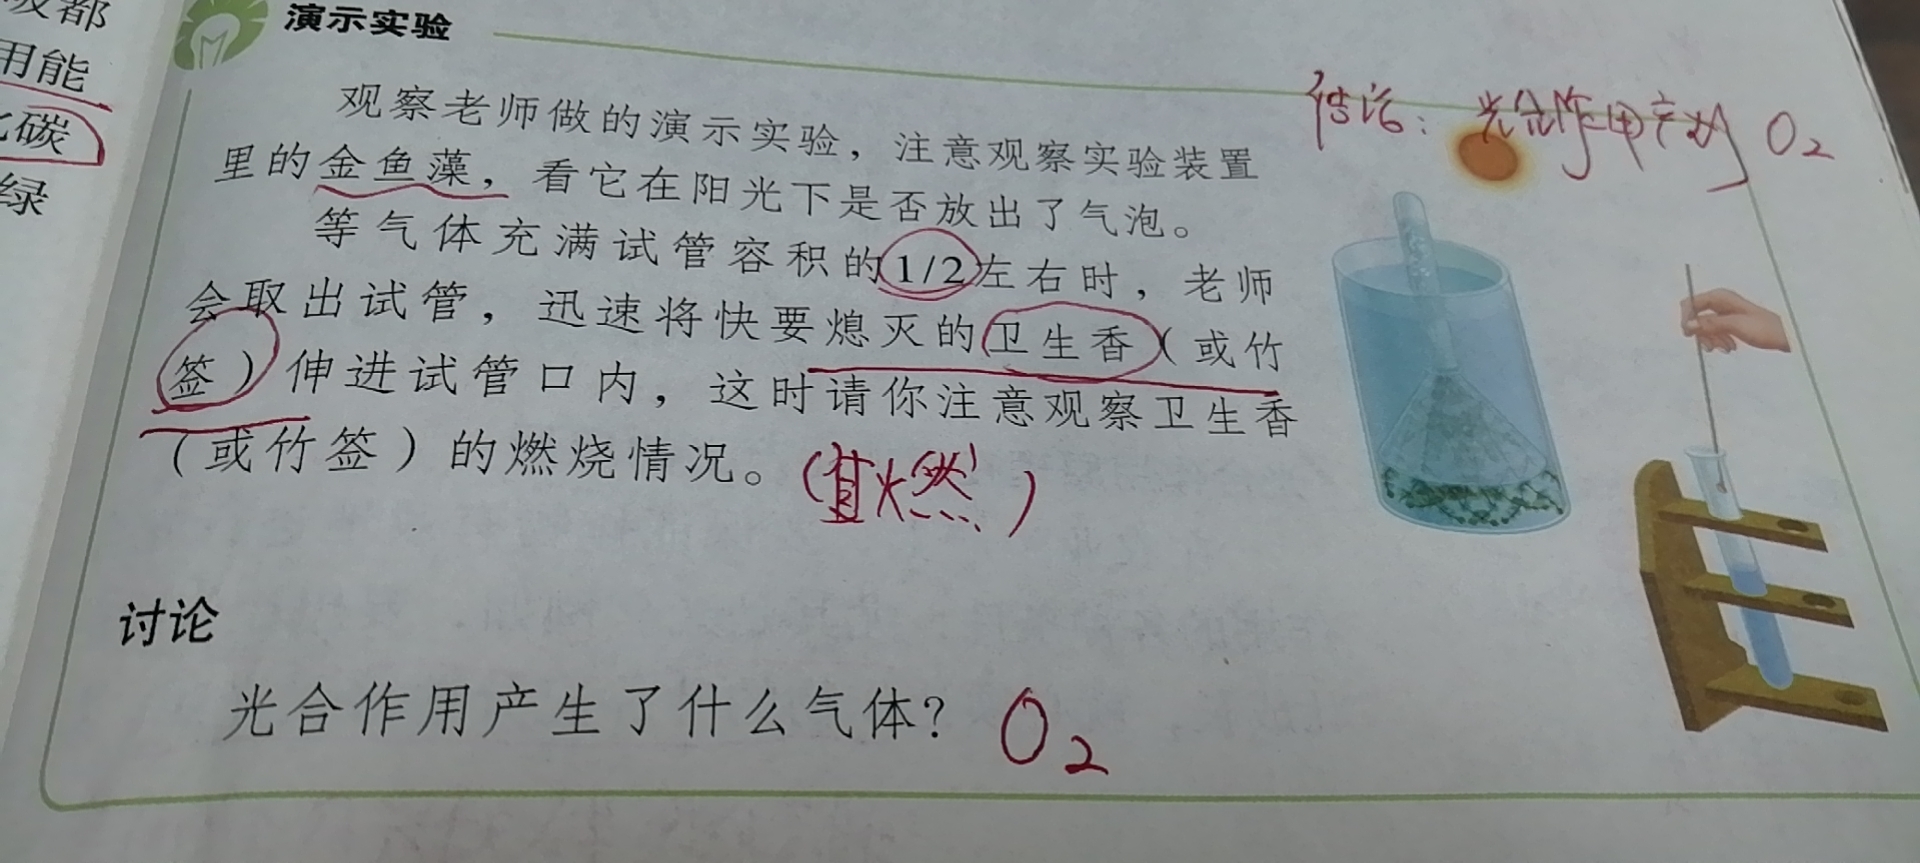 用能
碳
绿
演示实验
结论：光合作用产物 O₂
观察老师做的演示实验，注意观察实验装置
里的金鱼藻，看它在阳光下是否放出了气泡。
等气体充满试管容积的1/2左右时，老师
会取出试管，迅速将快要熄灭的卫生香（或竹
签）伸进试管口内，这时请你注意观察卫生香
（或竹签）的燃烧情况。（复燃）
讨论
光合作用产生了什么气体？ O₂